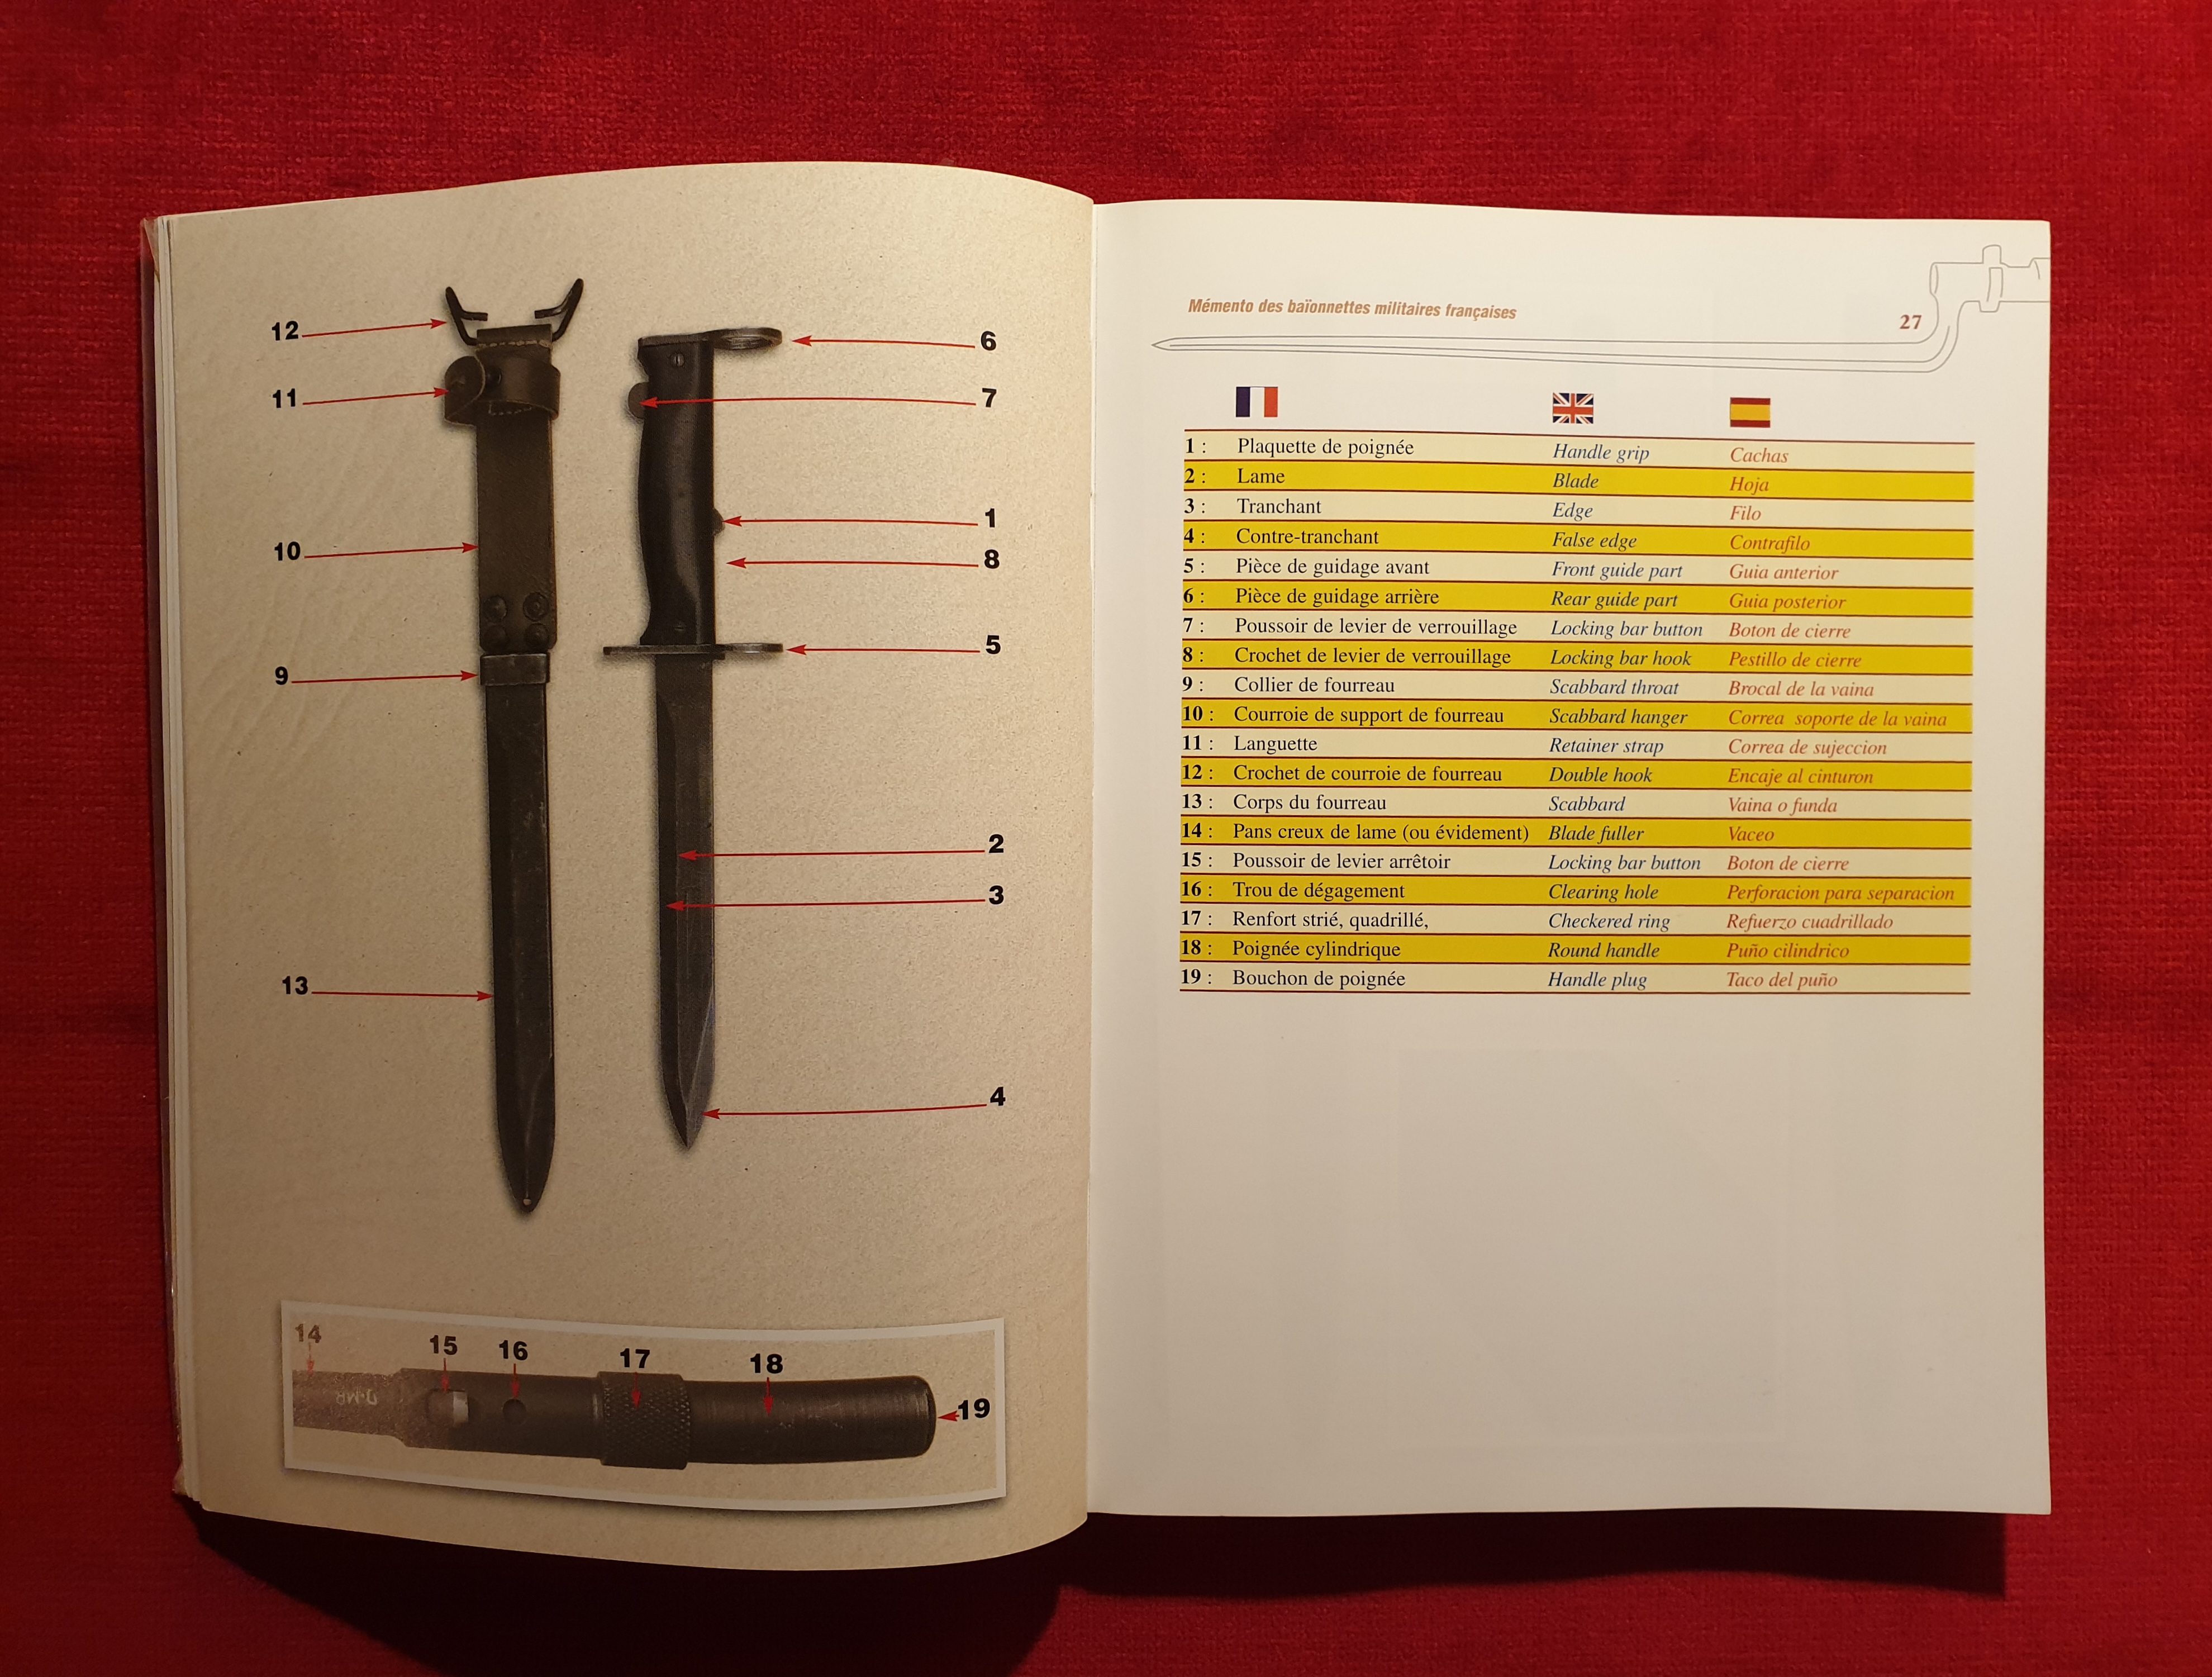 12
11
10
9
13
6
7
1
8
5
2
3
4
14
15
16
17
18
19
Mémento des baïonnettes militaires françaises
27
1 : Plaquette de poignée Handle grip Cachas
2 : Lame Blade Hoja
3 : Tranchant Edge Filo
4 : Contre-tranchant False edge Contrafilo
5 : Pièce de guidage avant Front guide part Guia anterior
6 : Pièce de guidage arrière Rear guide part Guia posterior
7 : Poussoir de levier de verrouillage Locking bar button Boton de cierre
8 : Crochet de levier de verrouillage Locking bar hook Pestillo de cierre
9 : Collier de fourreau Scabbard throat Brocal de la vaina
10 : Courroie de support de fourreau Scabbard hanger Correa soporte de la vaina
11 : Languette Retainer strap Correa de sujeccion
12 : Crochet de courroie de fourreau Double hook Encaje al cinturon
13 : Corps du fourreau Scabbard Vaina o funda
14 : Pans creux de lame (ou évidement) Blade fuller Vaceo
15 : Poussoir de levier arrêtoir Locking bar button Boton de cierre
16 : Trou de dégagement Clearing hole Perforacion para separacion
17 : Renfort strié, quadrillé, Checkered ring Refuerzo cuadrillado
18 : Poignée cylindrique Round handle Puño cilindrico
19 : Bouchon de poignée Handle plug Taco del puño